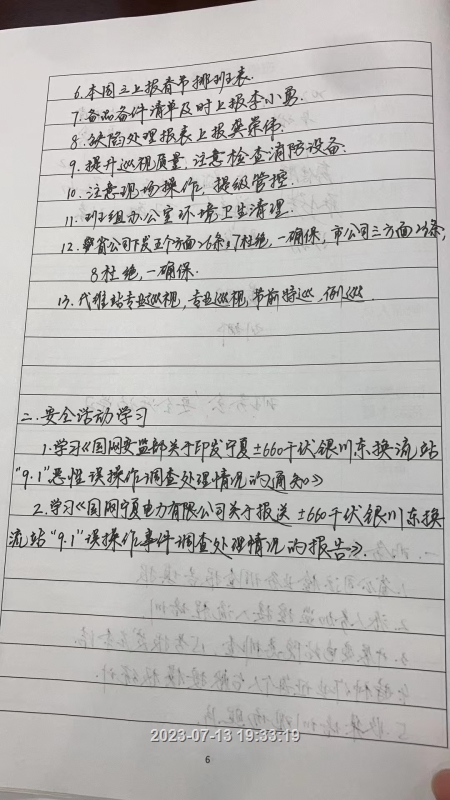 6.本周三上报春节排班表.
7.备品备件清单及时上报李小勇.
8.缺陷处理报表上报樊荣伟.
9.提升巡视质量,注意检查消防设备.
10.注意现场操作,提级管控.
11.班组办公室环境卫生清理.
12.省公司下发五个方面26条,17杜绝,一确保,市公司三方面23条,
8杜绝,一确保.
13.代维站专业巡视,专业巡视,节前特巡,例巡
二.安全活动学习
1.学习《国网安监部关于印发宁夏±660千伏银川东换流站
"9.1"恶性误操作调查处理情况的通知》
2.学习《国网宁夏电力有限公司关于报送±660千伏银川东换
流站"9.1"误操作事件调查处理情况的报告》.
2023-07-13 19:33:19
6